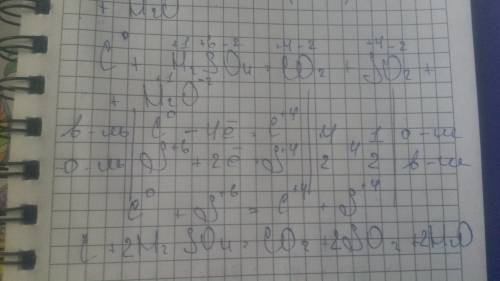 + H₂O
C⁰ + H₂⁺¹S⁺⁶O₄⁻² = C⁺⁴O₂⁻² + S⁺⁴O₂⁻² +
+ H₂⁺¹O⁻²
в-ль | C⁰ - 4ē = C⁺⁴ | 4 | 1 | о-ие
о-ль | S⁺⁶ + 2ē = S⁺⁴ | 2 | 4 | 2 | в-ие
C⁰ + S⁺⁶ = C⁺⁴ + S⁺⁴
C + 2H₂SO₄ = CO₂ + 2SO₂ + 2H₂O